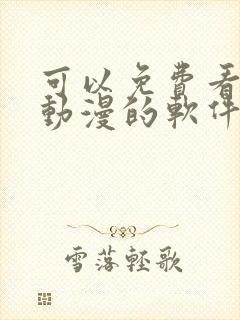 可以免費看
動漫的軟件
雪落輕歌